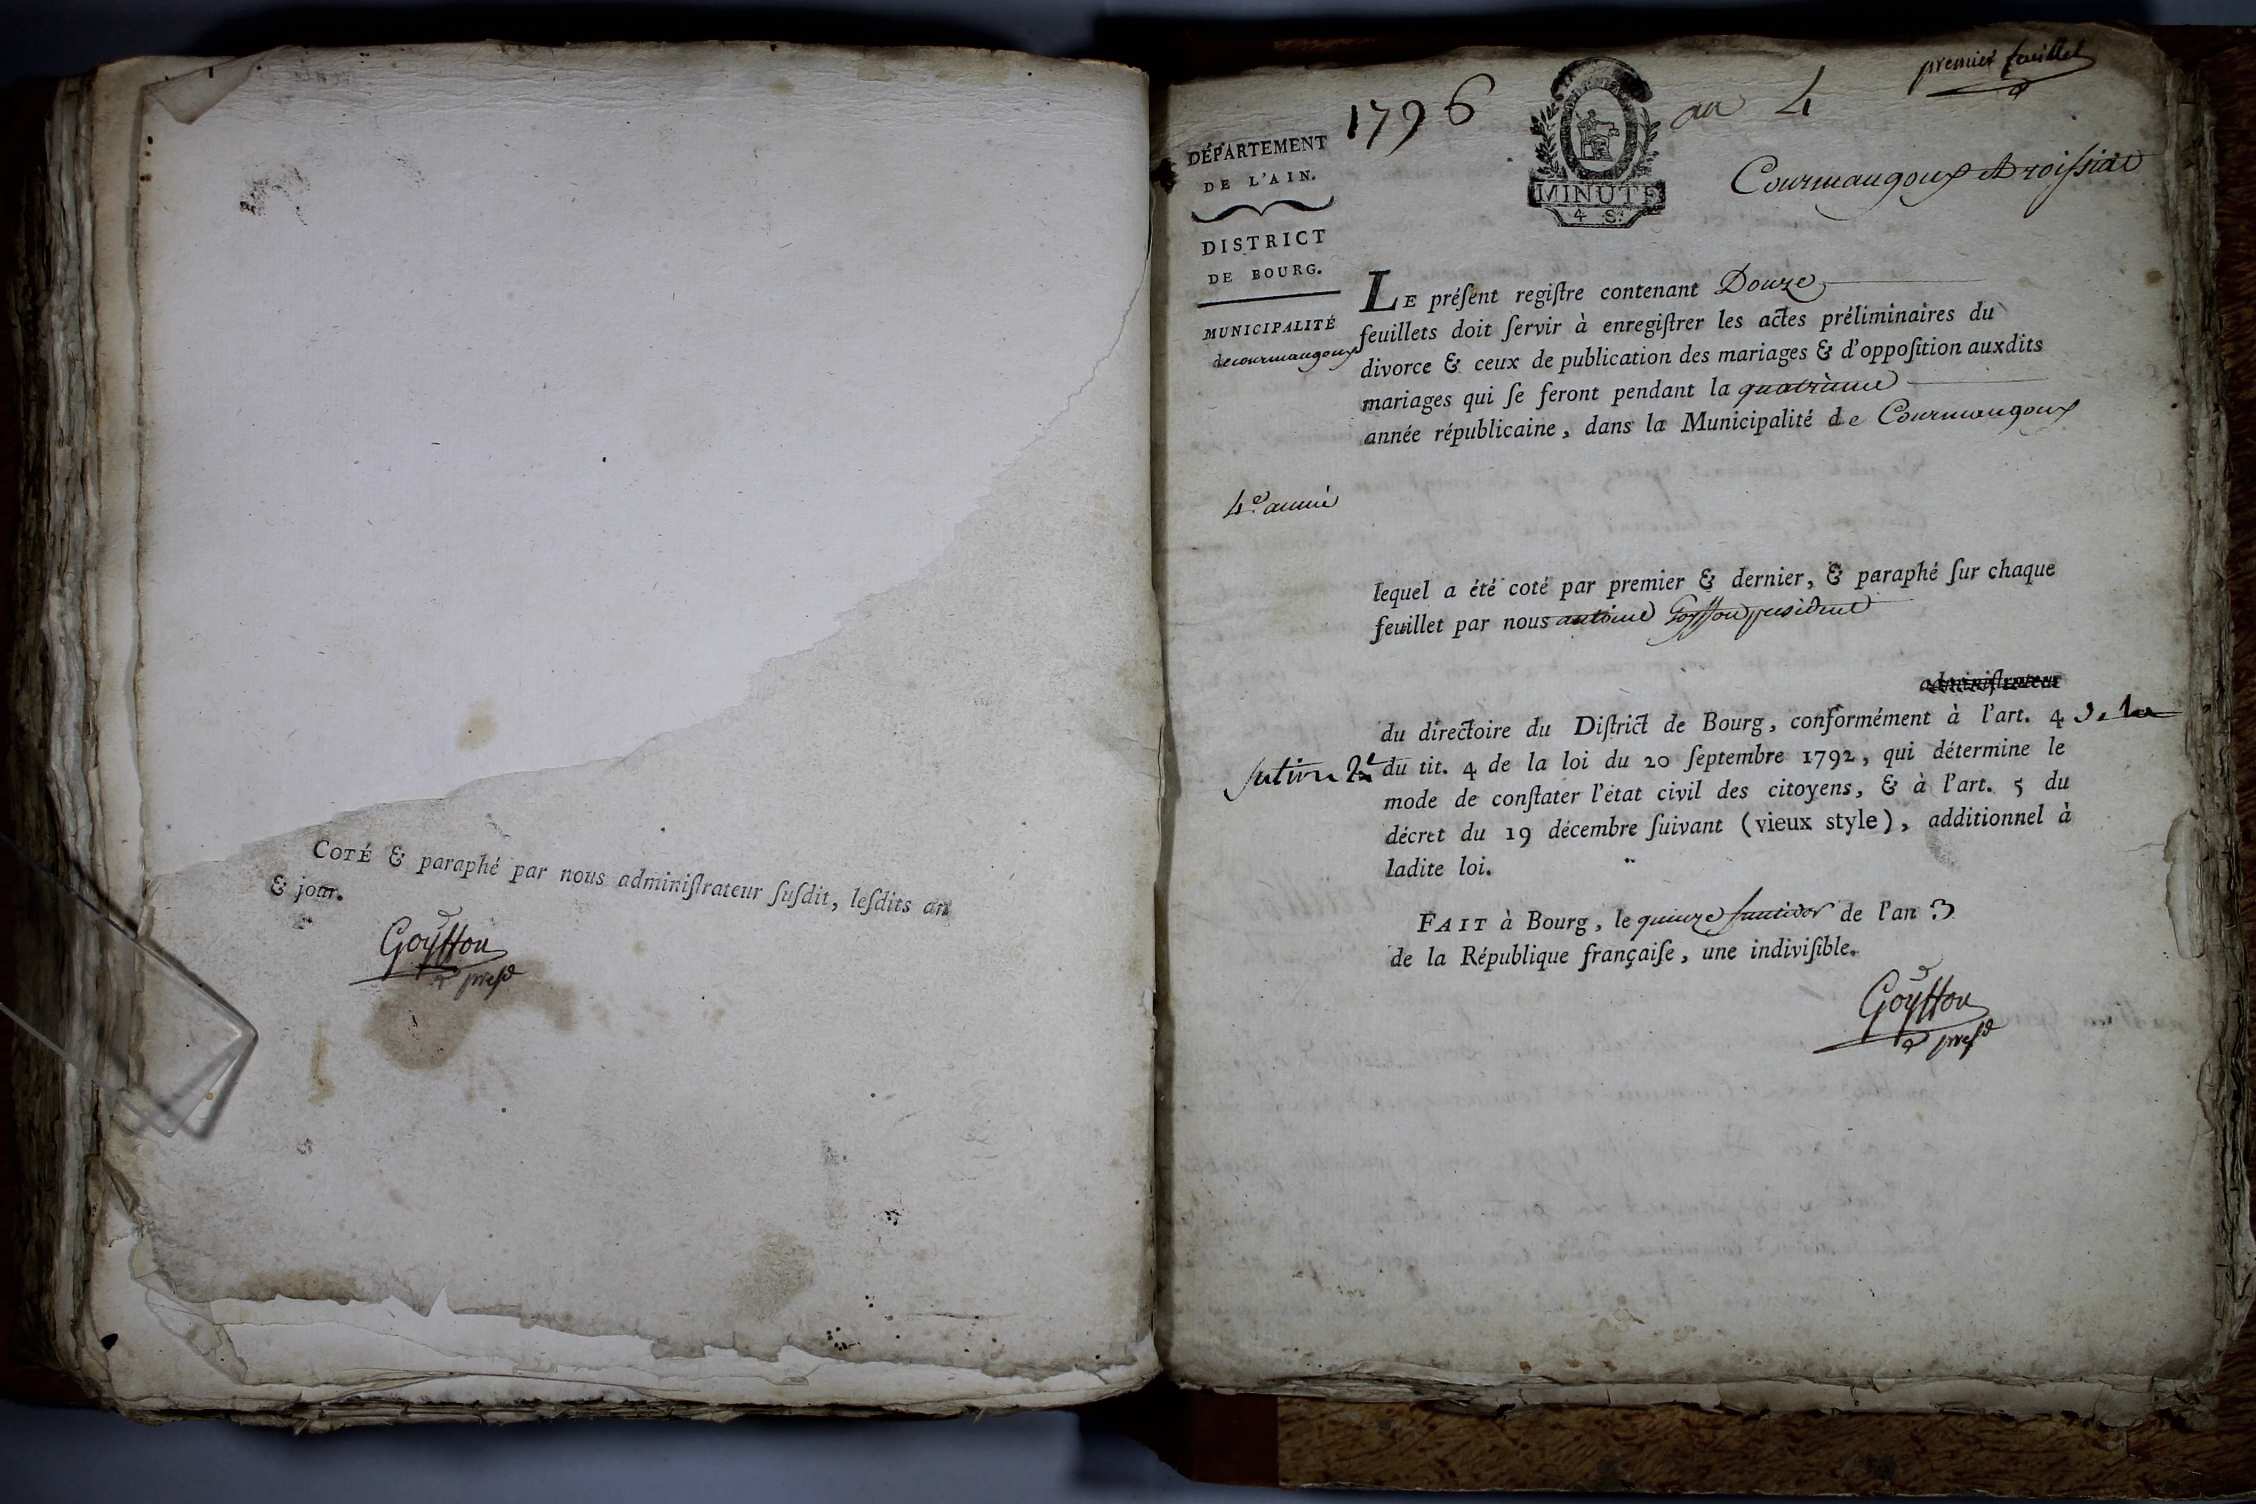 COTÉ & paraphé par nous adminiſtrateur ſuſdit, leſdits an
& jour.
Goyffon
preſd
premier feuillet
1796
an 4
MINUTE
4 S.
DÉPARTEMENT
DE L'AIN.
Courmangoux & roiſsiat
DISTRICT
DE BOURG.
MUNICIPALITÉ
de courmangoux
LE préſent regiſtre contenant Douze
feuillets doit ſervir à enregiſtrer les actes préliminaires du
divorce & ceux de publication des mariages & d'oppoſition auxdits
mariages qui ſe feront pendant la quatrieme
année républicaine, dans la Municipalité de Courmangoux
4.e année
lequel a été coté par premier & dernier, & paraphé ſur chaque
feuillet par nous antoine Goyffon president
adminiſtrateur
du directoire du Diſtrict de Bourg, conformément à l'art. 4 de la
section 2e du tit. 4 de la loi du 20 ſeptembre 1792, qui détermine le
mode de conſtater l'état civil des citoyens, & à l'art. 5 du
décret du 19 décembre ſuivant (vieux style), additionnel à
ladite loi.
FAIT à Bourg, le quinze fructidor de l'an 3
de la République françaiſe, une indiviſible.
Goyffon
preſd